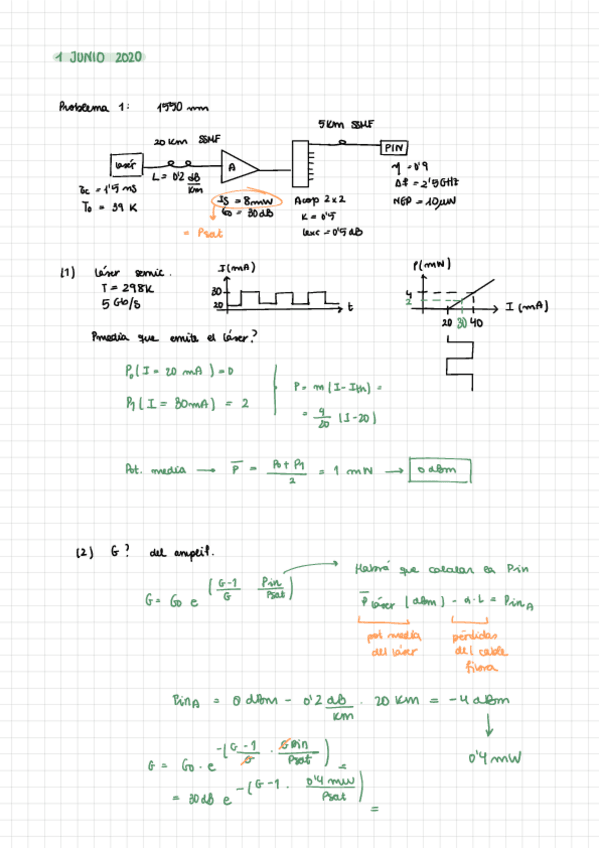 1 JUNIO 2020
Problema 1: 1550 nm
20 Km SSMF
5 Km SSMF
láser
A
PIN
L = 0'2 dB/Km
τc = 1'5 ns
T0 = 39 K
IS = 8mW
G0 = 30 dB
= Psat
Acop 2x2
K = 0'5
Lexc = 0'5 dB
η = 0'9
Δf = 2'5 GHz
NEP = 10 μW
(1) láser semic.
T = 298K
5 Gb/s
I (mA)
30
20
t
P(mW)
4
2
I (mA)
20 30 40
Pmedia que emite el láser?
P0 (I = 20 mA) = 0
P1 (I = 30mA) = 2
P = m (I - Ith) =
= 4/20 (I - 20)
Pot. media → P̅ = (P0 + P1)/2 = 1 mW → 0 dBm
(2) G? del amplif.
G = G0 e^((G-1)/G Pin/Psat)
Habrá que calcular la Pin
P̅ láser (dBm) - α·L = PinA
pot media del láser
pérdidas del cable fibra
PinA = 0 dBm - 0'2 dB/Km · 20 Km = -4 dBm
0'4 mW
G = G0 · e^-((G-1)/G · G Pin/Psat) =
= 30 dB e^-(G-1 · 0'4 mW/Psat) =